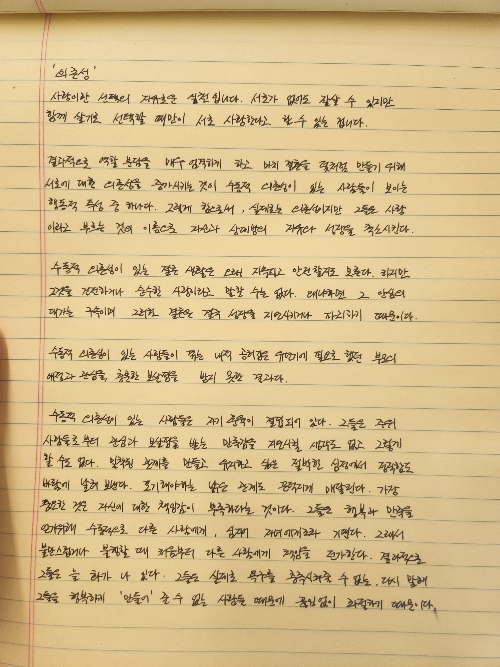 '의존성'
사랑이란 선택의 자유로운 실천입니다. 서로가 없어도 잘살 수 있지만
함께 살기로 선택할 때만이 서로 사랑한다고 할 수 있는 겁니다.
결과적으로 역할 분담을 매우 엄격하게 하고 마치 결혼을 덫처럼 만들기 위해
서로에 대한 의존심을 증가시키는 것이 수동적 의존성이 있는 사람들이 보이는
행동적 특성 중 하나다. 그렇게 함으로써, 실제로는 의존심이지만 그들은 사랑
이라고 부르는 것의 이름으로 자신과 상대방의 자유와 성장을 축소시킨다.
수동적 의존성이 있는 결혼 생활은 오래 지속되고 안전할지도 모른다. 하지만
그것을 건전하거나 순수한 사랑이라고 말할 수는 없다. 왜냐하면 그 안심의
대가는 구속이며 그러한 결혼은 결국 성장을 지연시키거나 파괴하기 때문이다.
수동적 의존성이 있는 사람들이 겪는 내적 공허감은 유년기에 필요로 했던 부모의
애정과 관심을, 충족한 보살핌을 받지 못한 결과다.
수동적 의존성이 있는 사람들은 자기 훈육이 결핍되어 있다. 그들은 주위
사람들로부터 관심과 보살핌을 받는 만족감을 지연시킬 생각도 없고 그렇게
할 수도 없다. 밀착된 관계를 만들고 유지하고 싶은 절박한 심정에서 정직함도
바람에 날려 보낸다. 포기해야하는 낡은 관계도 끈덕지게 매달린다. 가장
중요한 것은 자신에 대한 책임감이 부족하다는 것이다. 그들은 행복과 만족을
얻기위해 수동적으로 다른 사람에게, 심지어 자녀에게조차 기댄다. 그래서
불만스럽거나 불행할 때 처음부터 다른 사람에게 책임을 전가한다. 결과적으로
그들은 늘 화가 나 있다. 그들은 실제로 욕구를 충족시켜줄 수 없는, 다시 말해
그들을 행복하게 '만들어' 줄 수 없는 사람들 때문에 끊임없이 좌절하기 때문이다.